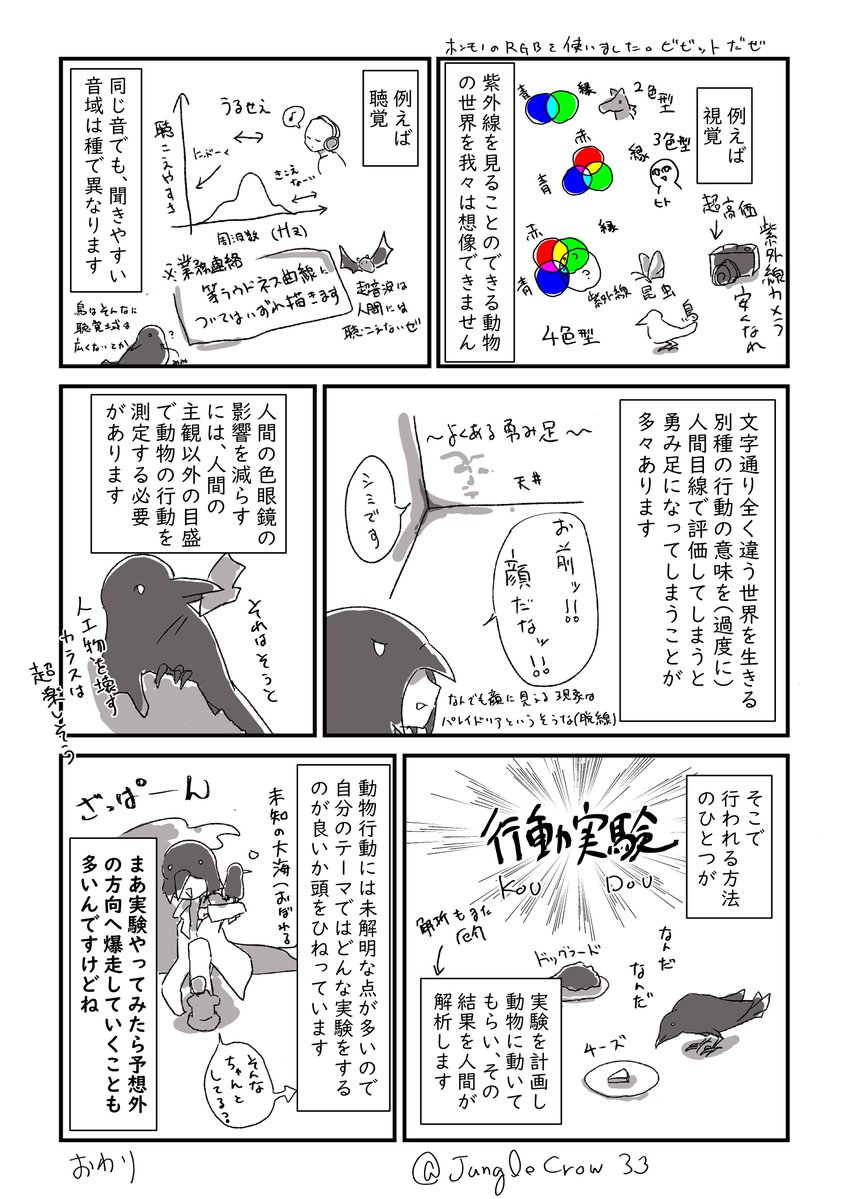 ホンモノのRGBを使いました。ビビットだぜ
例えば
視覚
紫外線を見ることのできる動物
の世界を我々は想像できません
青
緑
2色型
赤
緑
青
3色型
ヒト
赤
緑
青
紫外線
4色型
昆虫
鳥
超高価
紫外線カメラ
安くなれ
例えば
聴覚
同じ音でも、聞きやすい
音域は種で異なります
聴こえやすさ
うるせえ
にぶーく
きこえ
なーい
周波数(Hz)
※業務連絡
等ラウドネス曲線に
ついてはいずれ描きます
超音波は
人間には
聴こえないぜ
鳥はそんなに
聴覚域は
広くないとか
?
文字通り全く違う世界を生きる
別種の行動の意味を(過度に)
人間目線で評価してしまうと
勇み足になってしまうことが
多々あります
～よくある勇み足～
天井
シミです
お前ッ!!
顔だなッ!!
なんでも顔に見える現象は
パレイドリアというそうな(脱線)
人間の色眼鏡の
影響を減らす
には、人間の
主観以外の目盛
で動物の行動を
測定する必要
があります
それはそうと
人工物を壊す
カラスは
超楽しそう
そこで
行われる方法
のひとつが
行動実験
KOU DOU
解析もまた
厄介
実験を計画し
動物に動いて
もらい、その
結果を人間が
解析します
ドッグフード
チーズ
なんだ
なんだ
動物行動には未解明な点が多いので
自分のテーマではどんな実験をする
のが良いか頭をひねっています
ざっぱーん
未知の大海(おぼれる
そんな
ちゃんと
してる?
まあ実験やってみたら予想外
の方向へ爆走していくことも
多いんですけどね
おわり
@JungleCrow33